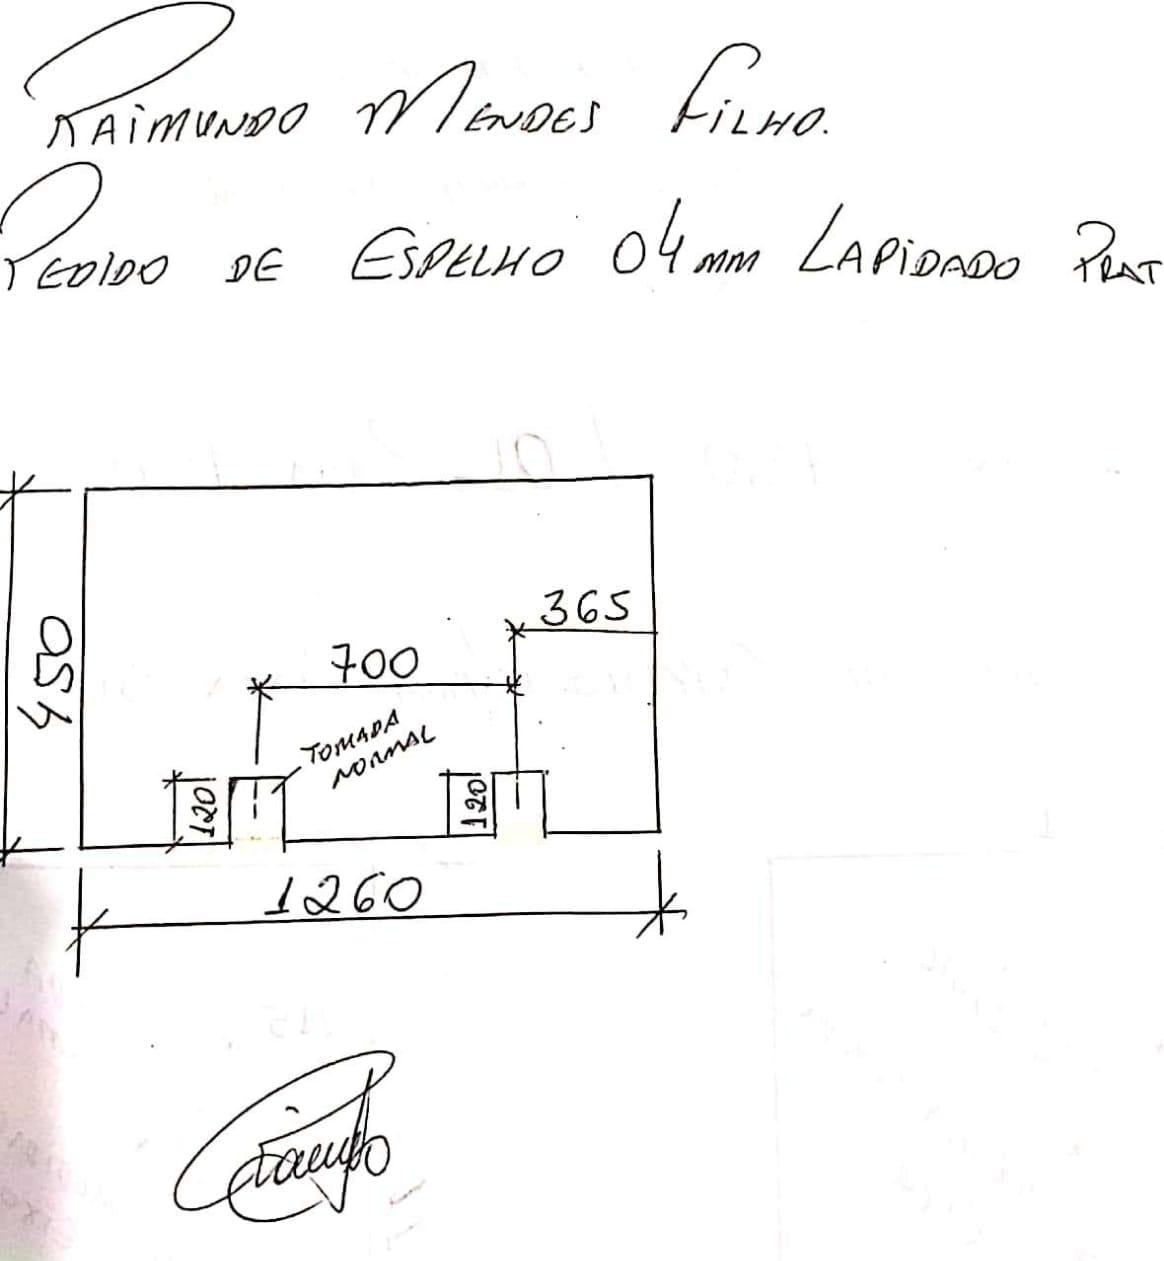 RAIMUNDO MENDES FILHO.
PEDIDO DE ESPELHO 04mm LAPIDADO PRAT
365
700
450
TOMADA
NORMAL
120
120
1260